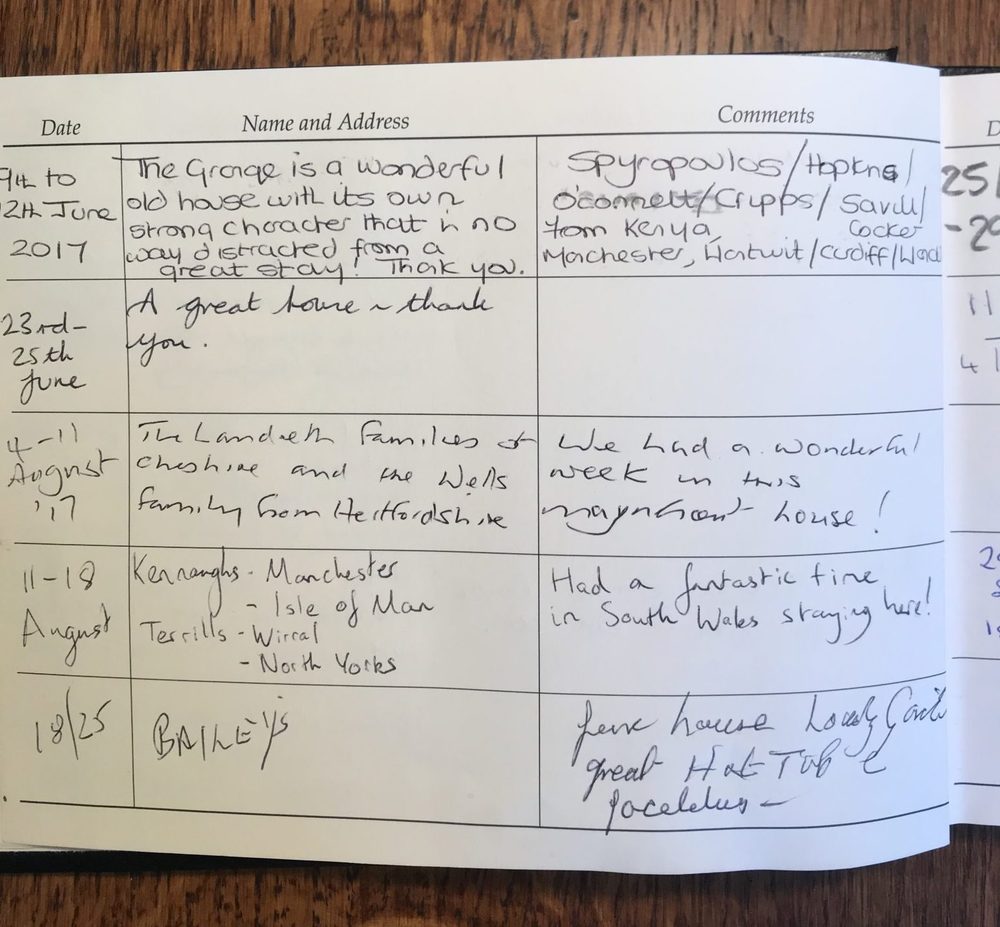 Date Name and Address Comments
9th to
12th June
2017
The Grange is a wonderful
old house with its own
strong character that in no
way distracted from a
great stay! Thank you.
Spyropoulos/Hopkins/
O'Connell/Cripps/Savill/
from Kenya, Cocker
Manchester, /Cardiff/
23rd-
25th
June
A great house ~ thank
you.
4-11
August
'17
The Landreth Families of
Cheshire and the Wells
family from Hertfordshire
We had a wonderful
week in this
magnificent house!
11-18
August
Kerraughs - Manchester
- Isle of Man
Terrills - Wirral
- North Yorks
Had a fantastic time
in South Wales staying here!
18/25
BAILEY'S
house Lovely
great Hot Tub &
25